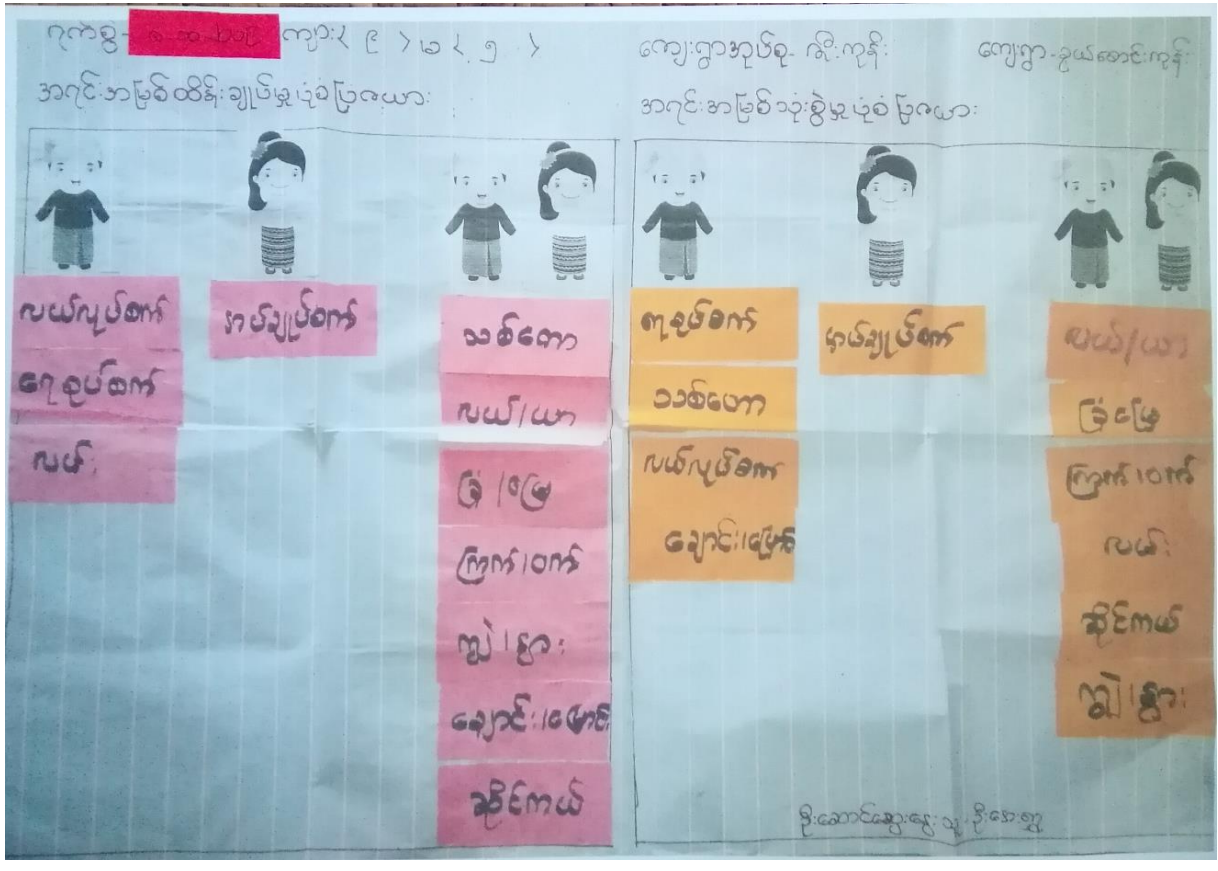 ရက်စွဲ- ကျား ( ၉ ) မ ( ၅ )
ကျေးရွာအုပ်စု-
ကျေးရွာ-
အရင်းအမြစ်ထိန်းချုပ်မှုပုံစံပြဇယား
အရင်းအမြစ်သုံးစွဲမှုပုံစံပြဇယား
လယ်လုပ်စက်
ရေစုပ်စက်
လမ်း
အပ်ချုပ်စက်
သစ်တော
လယ်/ယာ
ခြံ/မြေ
ကြက်/ဝက်
ကျွဲ/နွား
ချောင်း/မြောင်း
ဆိုင်ကယ်
ရေစုပ်စက်
သစ်တော
လယ်လုပ်စက်
ချောင်း/မြောင်း
အပ်ချုပ်စက်
လယ်/ယာ
ခြံမြေ
ကြက်/ဝက်
လမ်း
ဆိုင်ကယ်
ကျွဲ/နွား
ဦးဆောင်ဆွေးနွေးသူ-